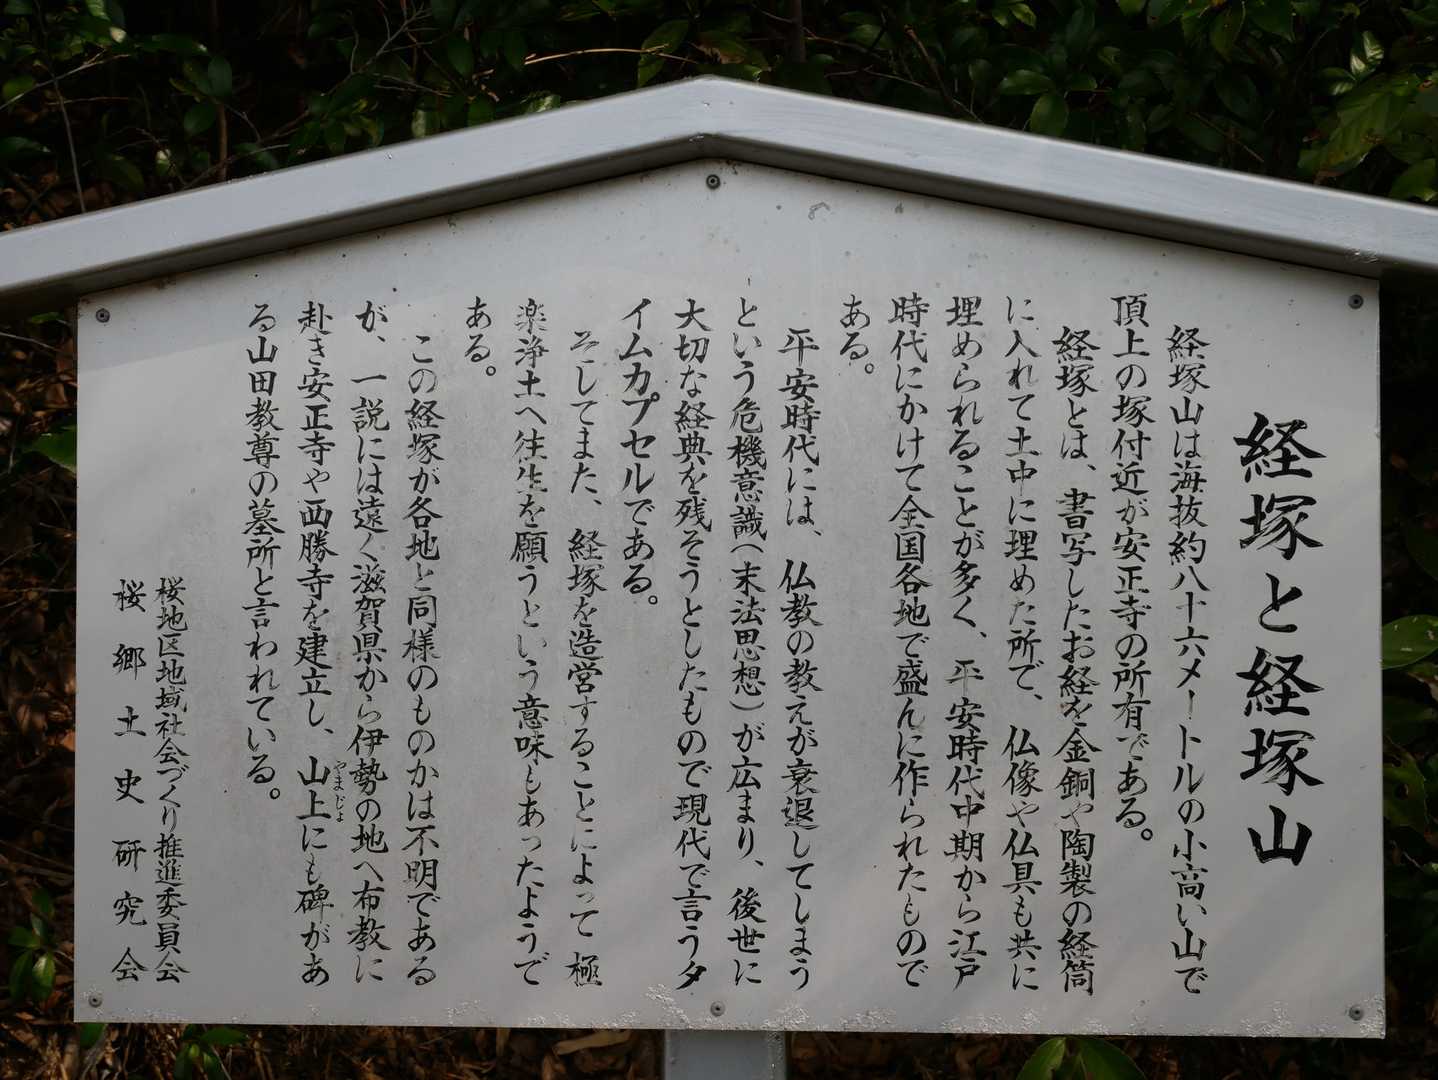 経塚と経塚山
経塚山は海抜約八十六メートルの小高い山で
頂上の塚付近が安正寺の所有である。
経塚とは、書写したお経を金銅や陶製の経筒
に入れて土中に埋めた所で、仏像や仏具も共に
埋められることが多く、平安時代中期から江戸
時代にかけて全国各地で盛んに作られたもので
ある。
平安時代には、仏教の教えが衰退してしまう
という危機意識(末法思想)が広まり、後世に
大切な経典を残そうとしたもので現代で言うタ
イムカプセルである。
そしてまた、経塚を造営することによって極
楽浄土へ往生を願うという意味もあったようで
ある。
この経塚が各地と同様のものかは不明である
が、一説には遠く滋賀県から伊勢の地へ布教に
赴き安正寺や西勝寺を建立し、山上にも碑があ
やまじょ
る山田教尊の墓所と言われている。
桜地区地域社会づくり推進委員会
桜郷土史研究会